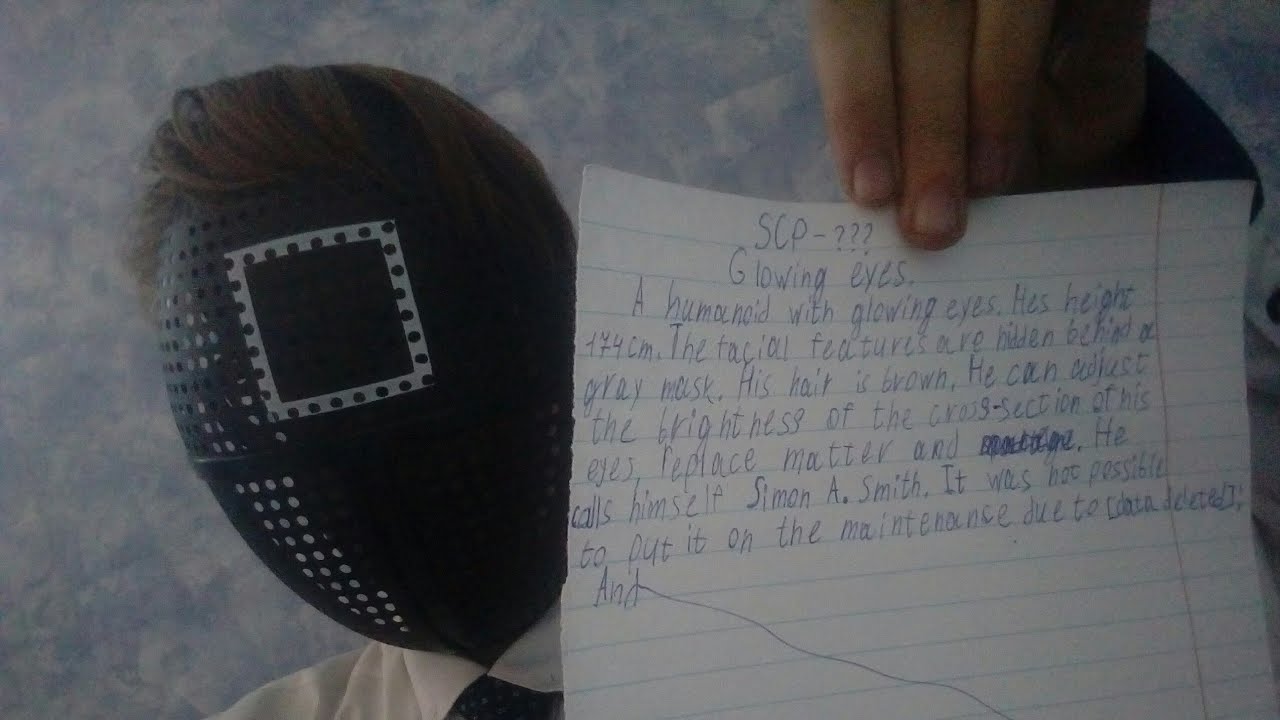 SCP-???
Glowing eyes.
A humanoid with glowing eyes. Hes height
174cm. The facial features are hidden behind a
gray mask. His hair is brown. He can adjust
the brightness of the cross-section of his
eyes, replace matter and . He
calls himself Simon A. Smith. It was not possible
to put it on the maintenance due to [data deleted];
And